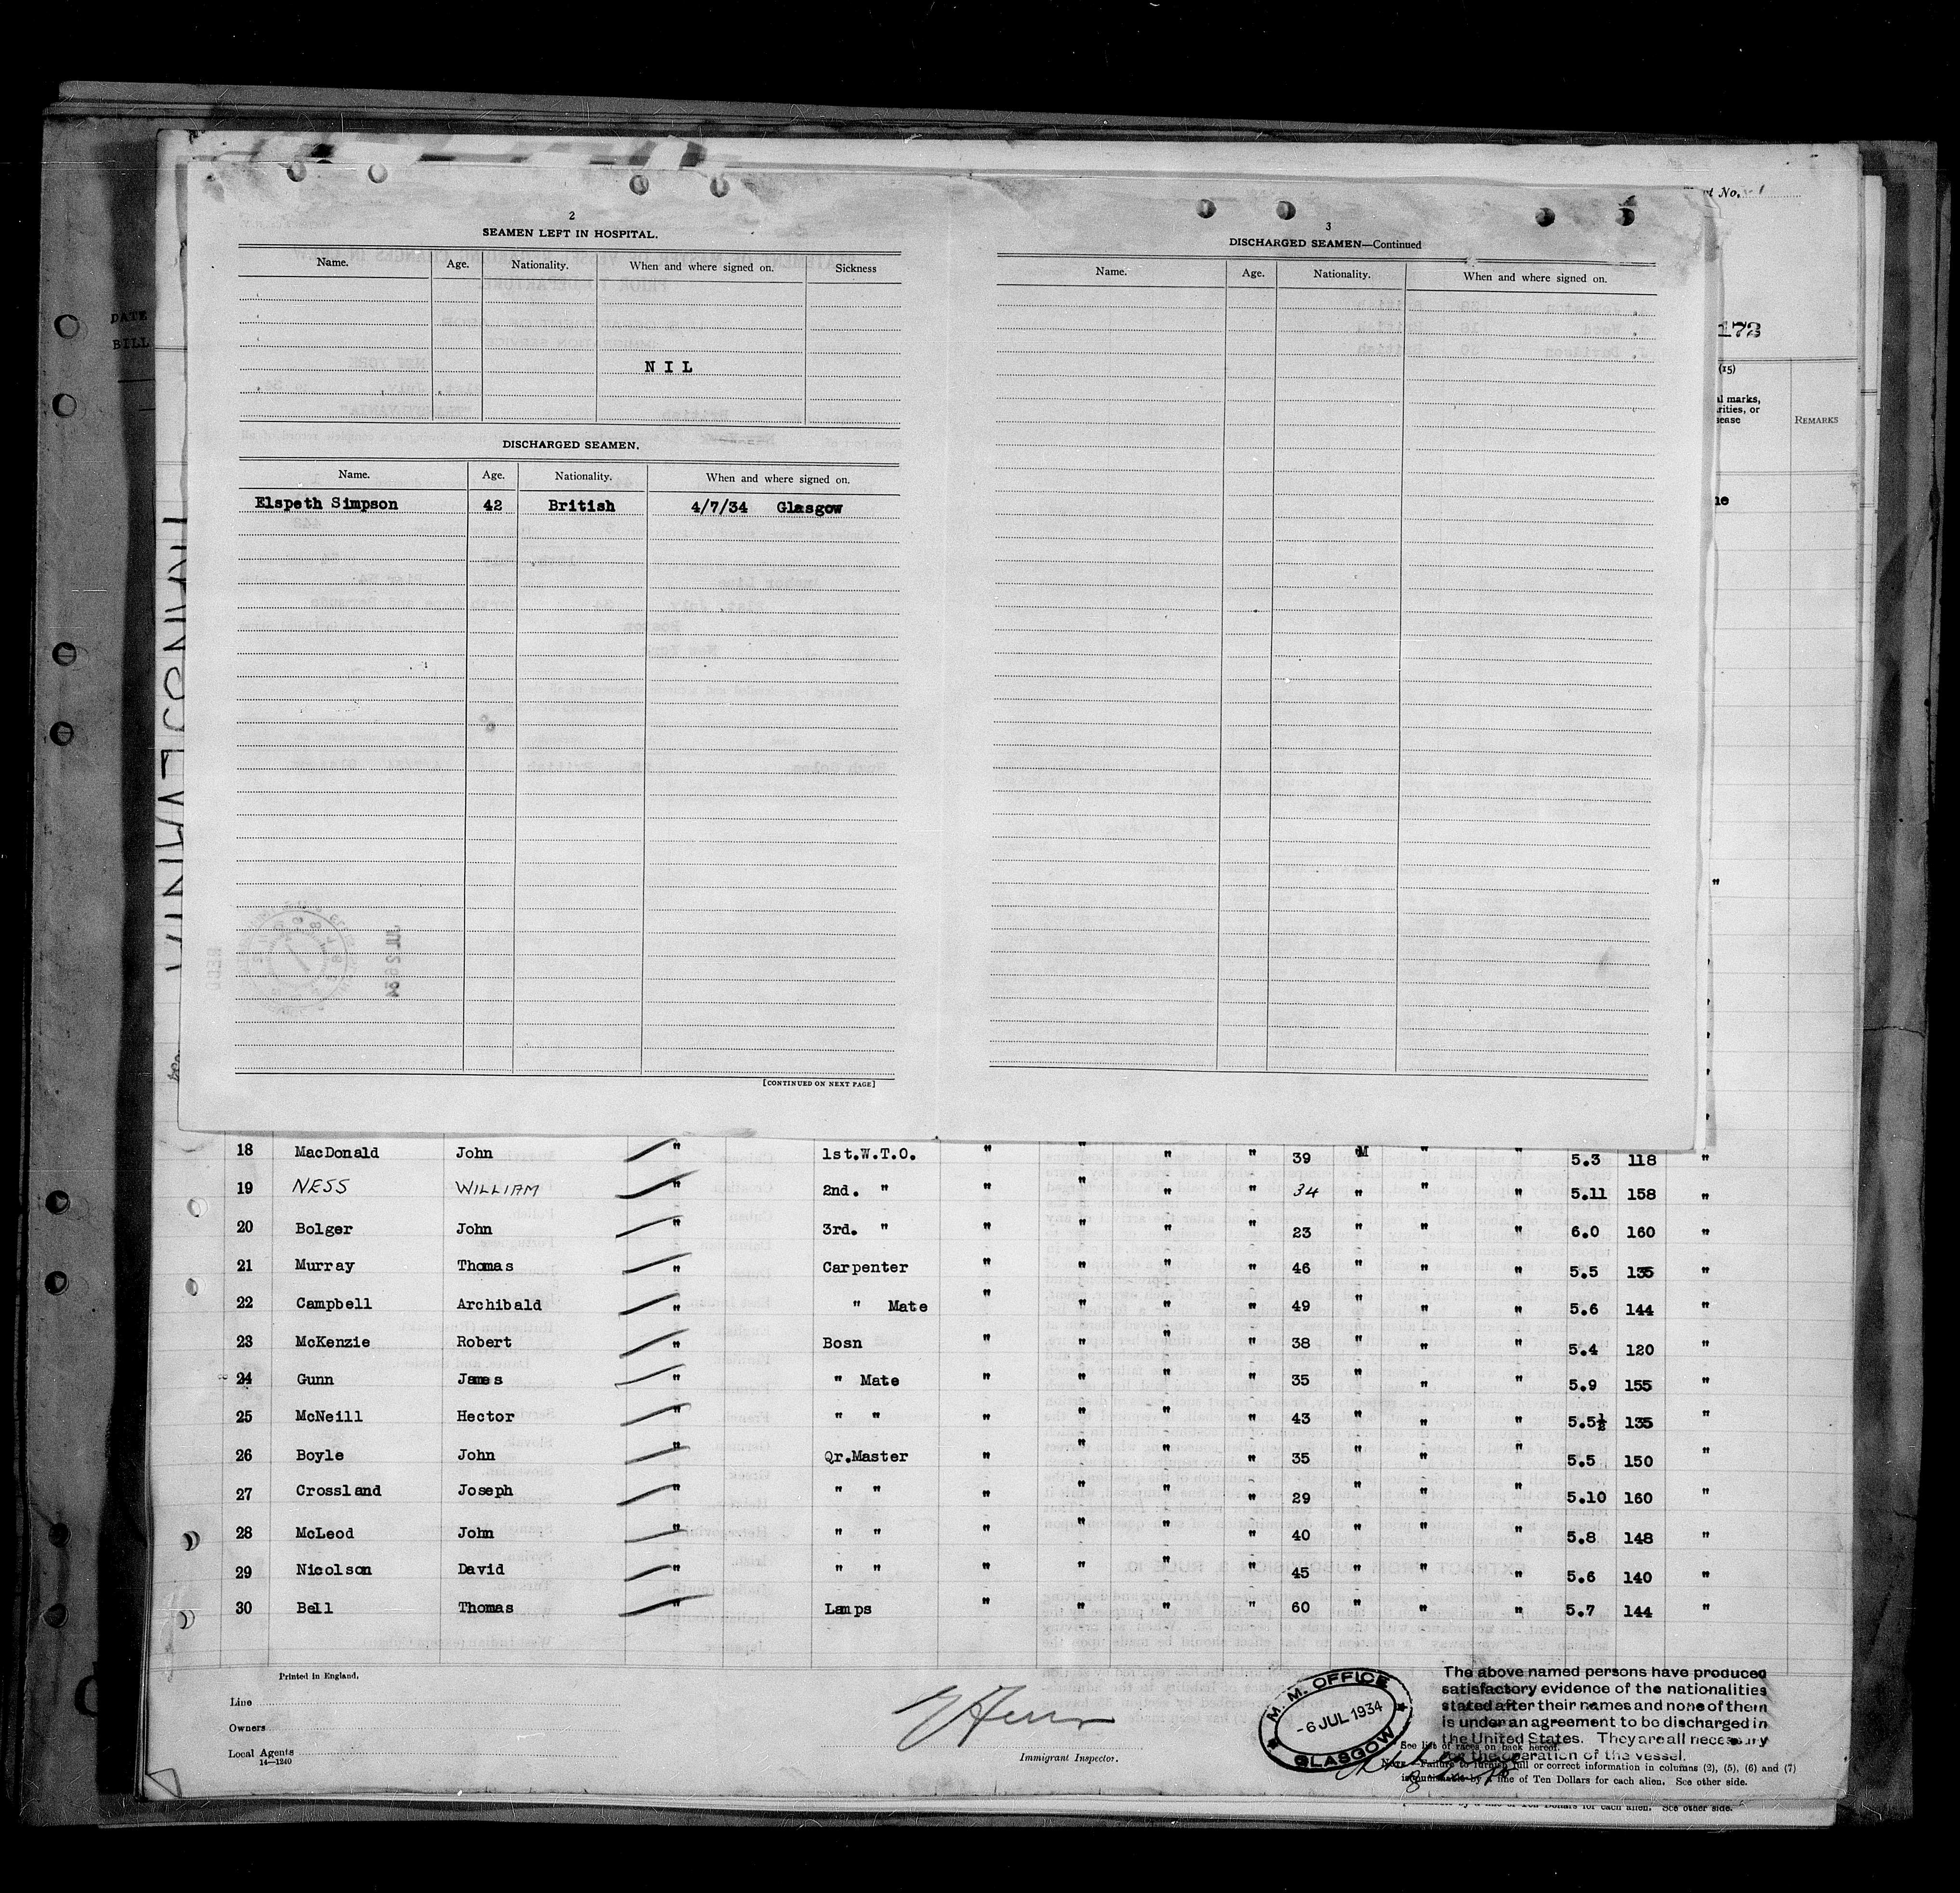 2
SEAMEN LEFT IN HOSPITAL.
Name. Age. Nationality. When and where signed on. Sickness
N I L
DISCHARGED SEAMEN.
Name. Age. Nationality. When and where signed on.
Elspeth Simpson 42 British 4/7/34 Glasgow
[CONTINUED ON NEXT PAGE]
3
DISCHARGED SEAMEN—Continued
Name. Age. Nationality. When and where signed on.
No.
172
(15)
marks,
or
REMARKS
DATE
BILL
18 MacDonald John " 1st.W.T.O. " " " " 39 M " " 5.3 118 "
19 NESS WILLIAM " 2nd. " " " " " 34 " " " 5.11 158 "
20 Bolger John " 3rd. " " " " " 23 " " " 6.0 160 "
21 Murray Thomas " Carpenter " " " " 46 " " " 5.5 135 "
22 Campbell Archibald " " Mate " " " " 49 " " " 5.6 144 "
23 McKenzie Robert " Bosn " " " " 38 " " " 5.4 120 "
24 Gunn James " " Mate " " " " 35 " " " 5.9 155 "
25 McNeill Hector " " " " " " " 43 " " " 5.5½ 135 "
26 Boyle John " Qr.Master " " " " 35 " " " 5.5 150 "
27 Crossland Joseph " " " " " " " 29 " " " 5.10 160 "
28 McLeod John " " " " " " " 40 " " " 5.8 148 "
29 Nicolson David " " " " " " " 45 " " " 5.6 140 "
30 Bell Thomas " Lamps " " " " 60 " " " 5.7 144 "
Printed in England.
Line
Owners
Local Agents
14—1240
Immigrant Inspector.
M. M. OFFICE
-6 JUL 1934
GLASGOW
The above named persons have produced
satisfactory evidence of the nationalities
stated after their names and none of them
is under an agreement to be discharged in
the United States. They are all necessary
for the operation of the vessel.
See list of races on back hereof.
NOTE.—Failure to furnish full or correct information in columns (2), (5), (6) and (7)
is punishable by a fine of Ten Dollars for each alien. See other side.
by a fine of Ten Dollars for each alien. See other side.